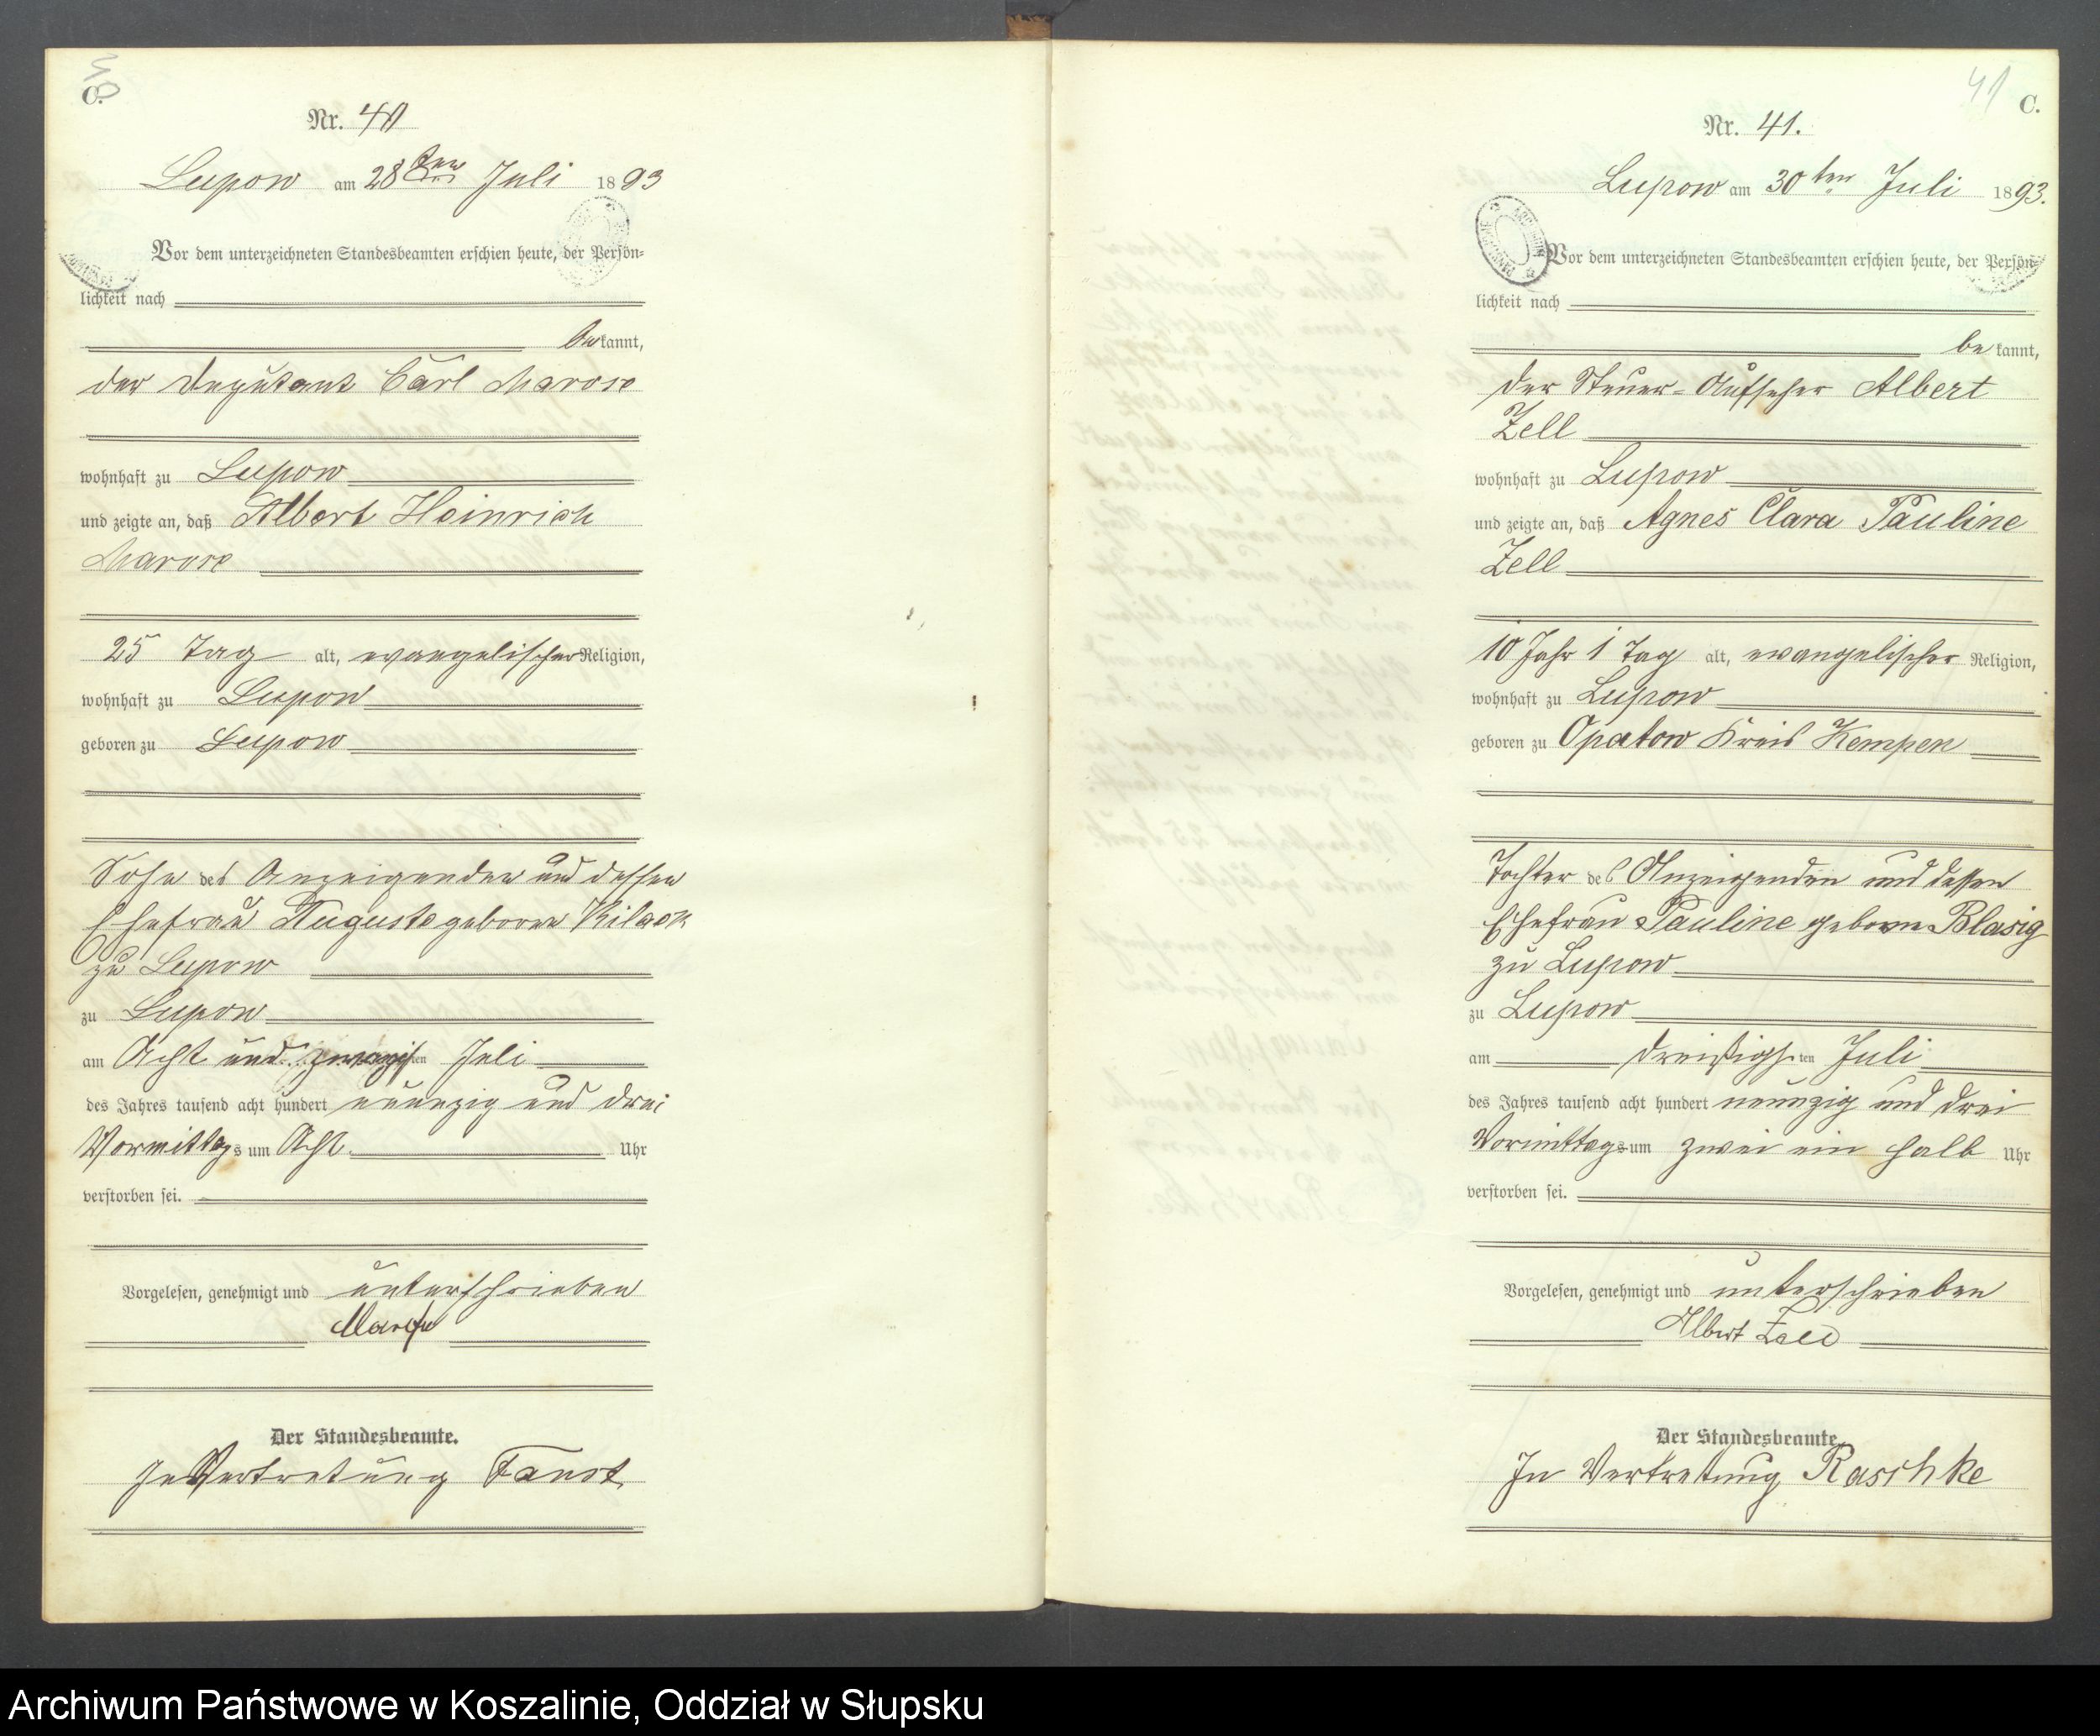 C.
Nr. 40
Lupow am 28ten Juli 1893
Vor dem unterzeichneten Standesbeamten erschien heute, der Persön-
lichkeit nach
bekannt,
der Deputant Carl Marose
wohnhaft zu Lupow
und zeigte an, daß Albert Heinrich
Marose
25 Tag alt, evangelischer Religion,
wohnhaft zu Lupow
geboren zu Lupow
Sohn des Anzeigenden und dessen
Ehefrau Auguste geborene
zu Lupow
zu Lupow
am Acht und zwanzigsten Juli
des Jahres tausend acht hundert neunzig und drei
Vormittags um Acht Uhr
verstorben sei.
Vorgelesen, genehmigt und unterschrieben
Der Standesbeamte.
In Vertretung Faust
41
C.
Nr. 41.
Lupow am 30ten Juli 1893.
Vor dem unterzeichneten Standesbeamten erschien heute, der Persön-
lichkeit nach
bekannt,
der Steuer-Aufseher Albert
Zell
wohnhaft zu Lupow
und zeigte an, daß Agnes Clara Pauline
Zell
10 Jahr 1 Tag alt, evangelischer Religion,
wohnhaft zu Lupow
geboren zu Opatow Kreis Kempen
Tochter des Anzeigenden und dessen
Ehefrau Pauline geborne Blasig
zu Lupow
zu Lupow
am dreißigsten Juli
des Jahres tausend acht hundert neunzig und drei
Vormittags um zwei ein halb Uhr
verstorben sei.
Vorgelesen, genehmigt und unterschrieben
Albert Zell
Der Standesbeamte
In Vertretung Raschke
Archiwum Państwowe w Koszalinie, Oddział w Słupsku